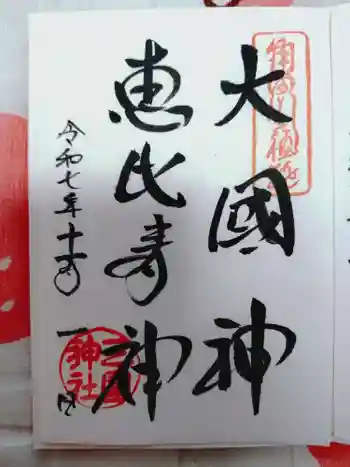 大國神
恵比寿神
令和七年十一月一日
三國神社